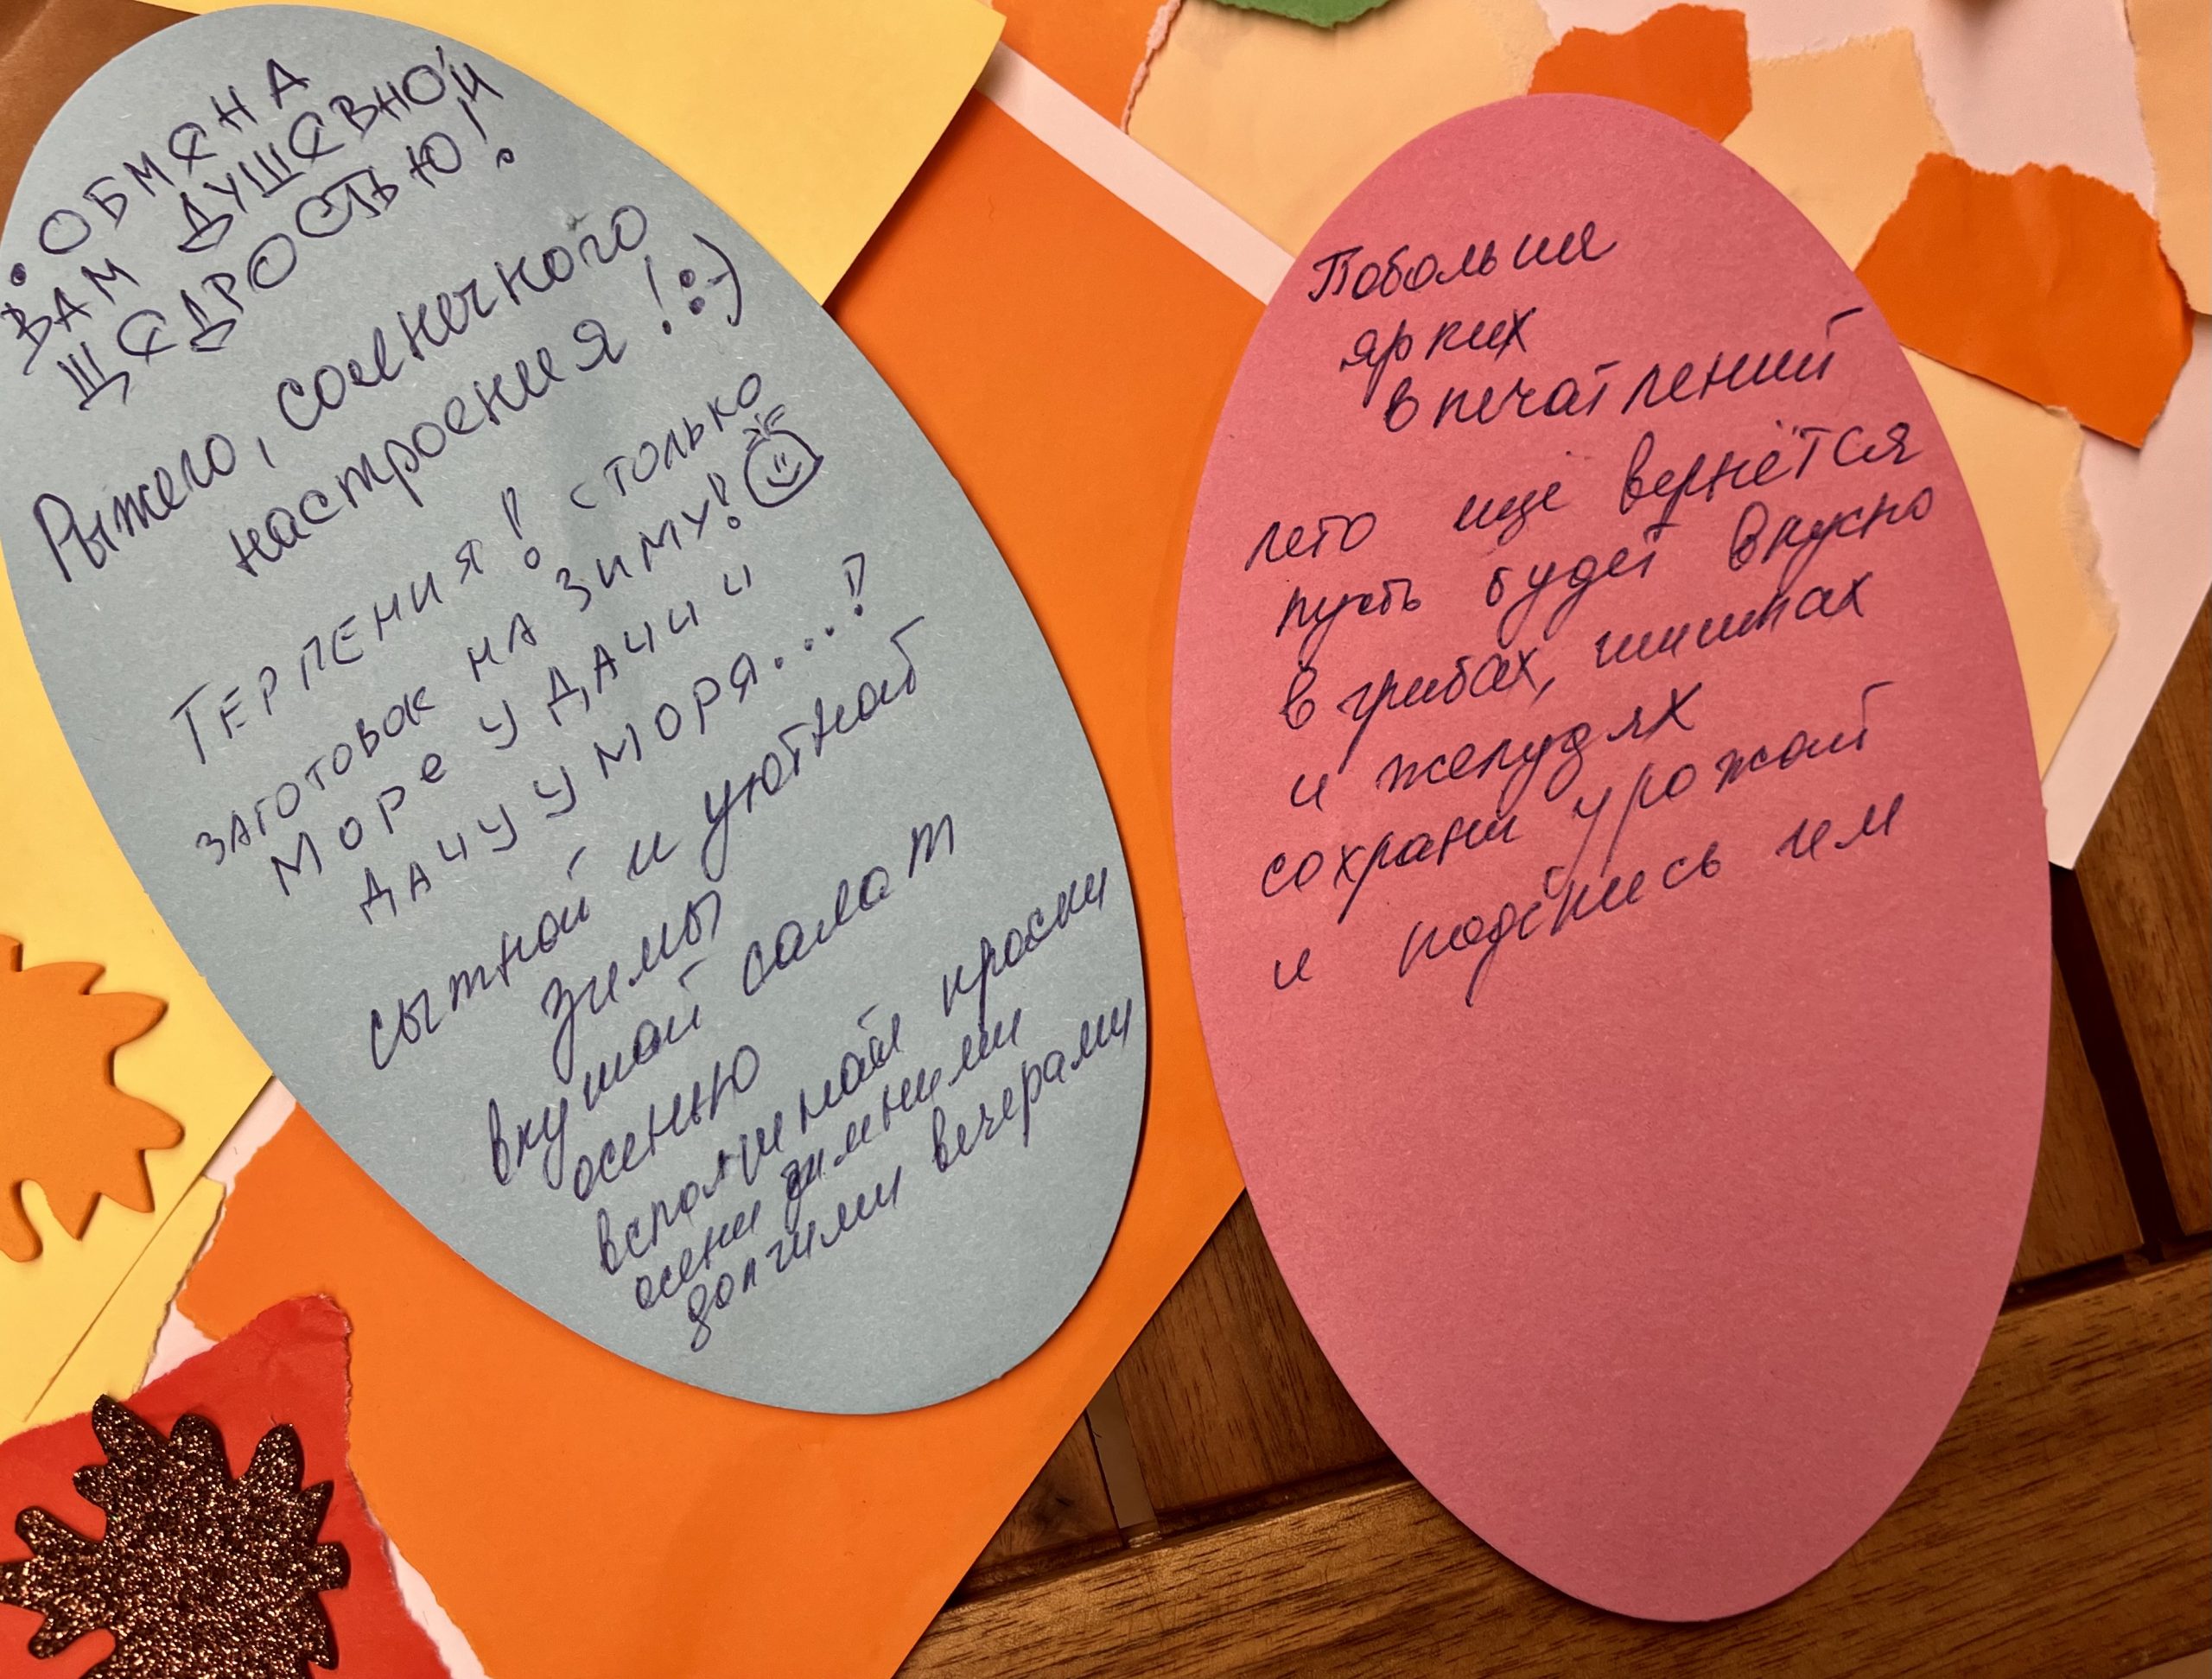 . ОБМАНА
ВАМ ДУШАВНОЙ
ЩАДРОСТЬЮ!
Рыжего, солнечного
настроения! :-)
ТЕРПЕНИЯ! СТОЛЬКО
ЗАГОТОВОК НА ЗИМУ!
МОРЕ УДАЧИ И
ДАЧУ У МОРЯ...!
сытной и уютной
зимы
вкушай салат
осенью
вспоминай краски
осени зимними
долгими вечерами
Побольше
ярких
впечатлений
лето ещё вернётся
пусть будет вкусно
в грибах, шишках
и желудях
сохрани урожай
и поделись им